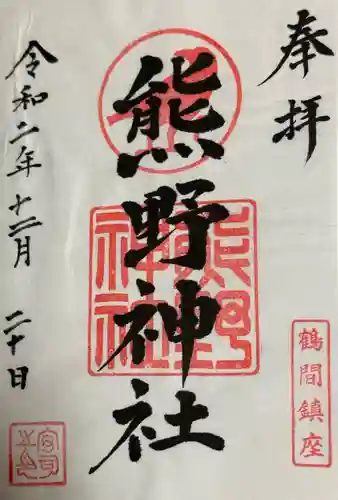 奉拝
鶴間鎮座
熊野神社
熊野神社
令和二年十二月二十日